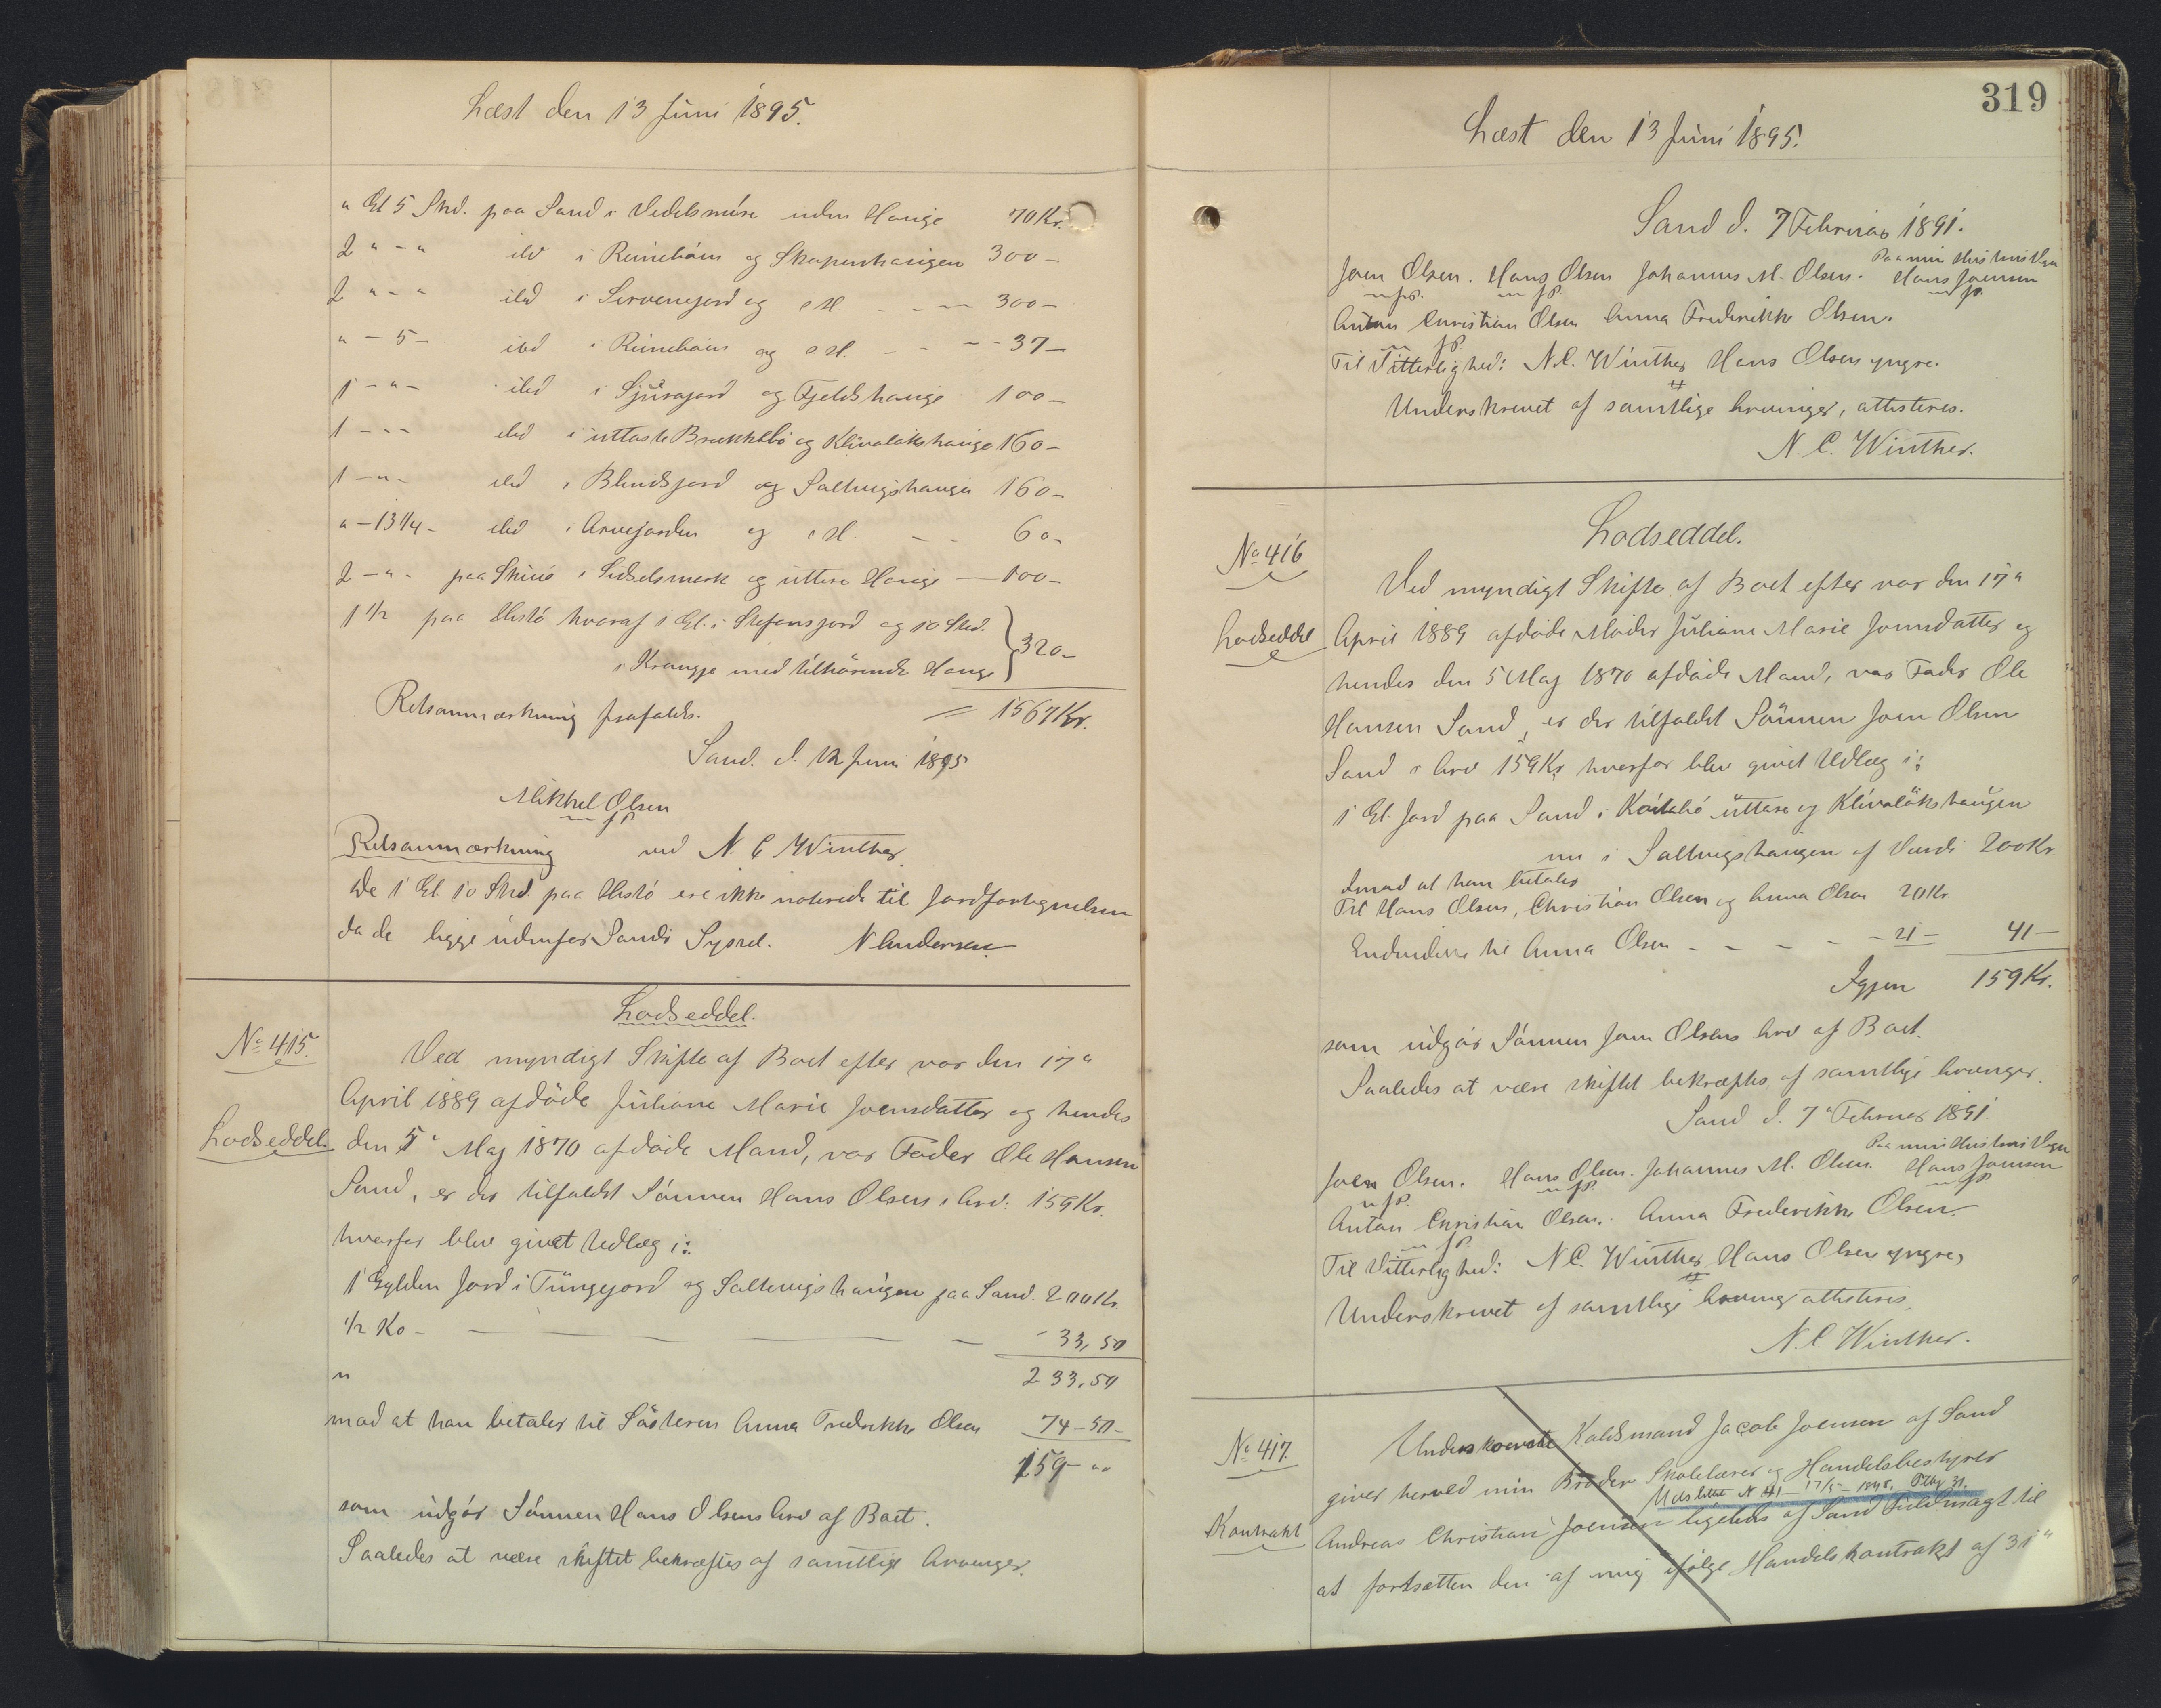 Læst den 13 Juni 1895.
" Gl 5 Skd. paa Sand i Vedelsmúra uden Hauge 70 Kr.
2 " - " ibd i Reinebáin og Skapenhaugen 300 -
2 " - " ibd i Servenejord og s H. - - - 300 -
" - 5 - ibd i Reinebáin og s H. - - - 37 -
1 - " - ibd i Sjúrajord og Fjeldshauge 100 -
1 - " - ibd i uttaste Brekkubö og Klivalökshauge 160 -
1 - " - ibd i Blindsjord og Saltvigshaugen 160 -
" - 13 1/4 - ibd i Arvejorden og s H. - - 60 -
2 - " - paa Skúö i Sidselsmark og uttere Hauge - 100 -
1 1/2 paa Hestö hvoraf 1 Gl. i Stefansjord og 10 Skd.
i Krangje med tilhörende Hauge 320 -
Retsanmærkning frafaldes. = 1567 Kr.
Sand. d. 12 Juni 1895
Mikkel Olsen
m f P
Retsanmærkning ved N. C Winther.
De 1 Gl. 10 Skd. paa Hestö ere ikke noterede til Jordfortegnelsen
da de ligge udenfor Sands Syssel. N Andersen.
Lodseddel.
No 415.
Ved myndigt Skifte af Boet efter vor den 17 "
April 1889 afdöde Juliane Marie Joensdatter og hendes
Lodseddel. den 5 " Maj 1870 afdöde Mand, vor Fader Ole Hansen
Sand, er der tilfaldet Sönnen Hans Olsen i Arv: 159 Kr.
hvorfor blev givet Udlæg i:
1 Gylden Jord i Tüngejord og Saltvigshaugen paa Sand. 200 Kr.
1/2 Ko - - - - - 33,50
" 233,50
mod at han betaler til Sösteren Anna Fredrikke Olsen 74-50-
159 - "
som udgör Sönnen Hans Olsens Arv af Boet.
Saaledes at være skiftet bekræftes af samtlige Arvinger.
319
Læst den 13 Juni 1895.
Sand d. 7 Februar 1891.
Paa min Hustrues Vegne
Joen Olsen. Hans Olsen Johannes M. Olsen. Hans Joensen
m f P. m f P. m f P.
Anton Christian Olsen Anna Frederikke Olsen.
m f P.
Til Vitterlighed: N. C. Winther Hans Olsen yngre.
Underskrevet af samtlige Arvinger, attesteres.
N. C. Winther.
Lodseddel.
No 416
Ved myndigt Skifte af Boet efter vor den 17 "
Lodseddel April 1889 afdöde Moder Juliane Marie Joensdatter og
hendes den 5 Maj 1870 afdöde Mand, vor Fader Ole
Hansen Sand, er der tilfaldet Sönnen Joen Olsen
Sand i Arv 159 Kr. hvorfor blev givet Udlæg i:
1 Gl. Jord paa Sand i uttara og Klivalökshaugen
nu i Saltvigshaugen af Værdi 200 Kr.
Imod at han betaler
Til Hans Olsen, Christian Olsen og Anna Olsen 20 Kr.
Endvidere til Anna Olsen - - - - - 21 - 41 -
Igjen 159 Kr.
som udgör Sönnen Joen Olsens Arv af Boet.
Saaledes at være skiftet bekræftes af samtlige Arvinger.
Sand d. 7 " Februar 1891.
Paa min Hustrues Vegne
Joen Olsen. Hans Olsen. Johannes M. Olsen. Hans Joensen
m f P. m f P. m f P
Anton Christian Olsen. Anna Frederikke Olsen.
m f P
Til Vitterlighed: N. C. Winther, Hans Olsen yngre,
Underskrevet af samtlige Arvinger attesteres,
N. C. Winther.
No 417.
Underskrevne Kaldsmand Jacob Joensen af Sand
giver herved min Broder Skolelærer og Handelsbestyrer
Udslettet N 41 - 17/5 - 1898.
Kontrakt Andreas Christian Joensen ligeledes af Sand Fuldmagt til
at fortsætten den af mig ifölge Handelskontrakt af 31 "